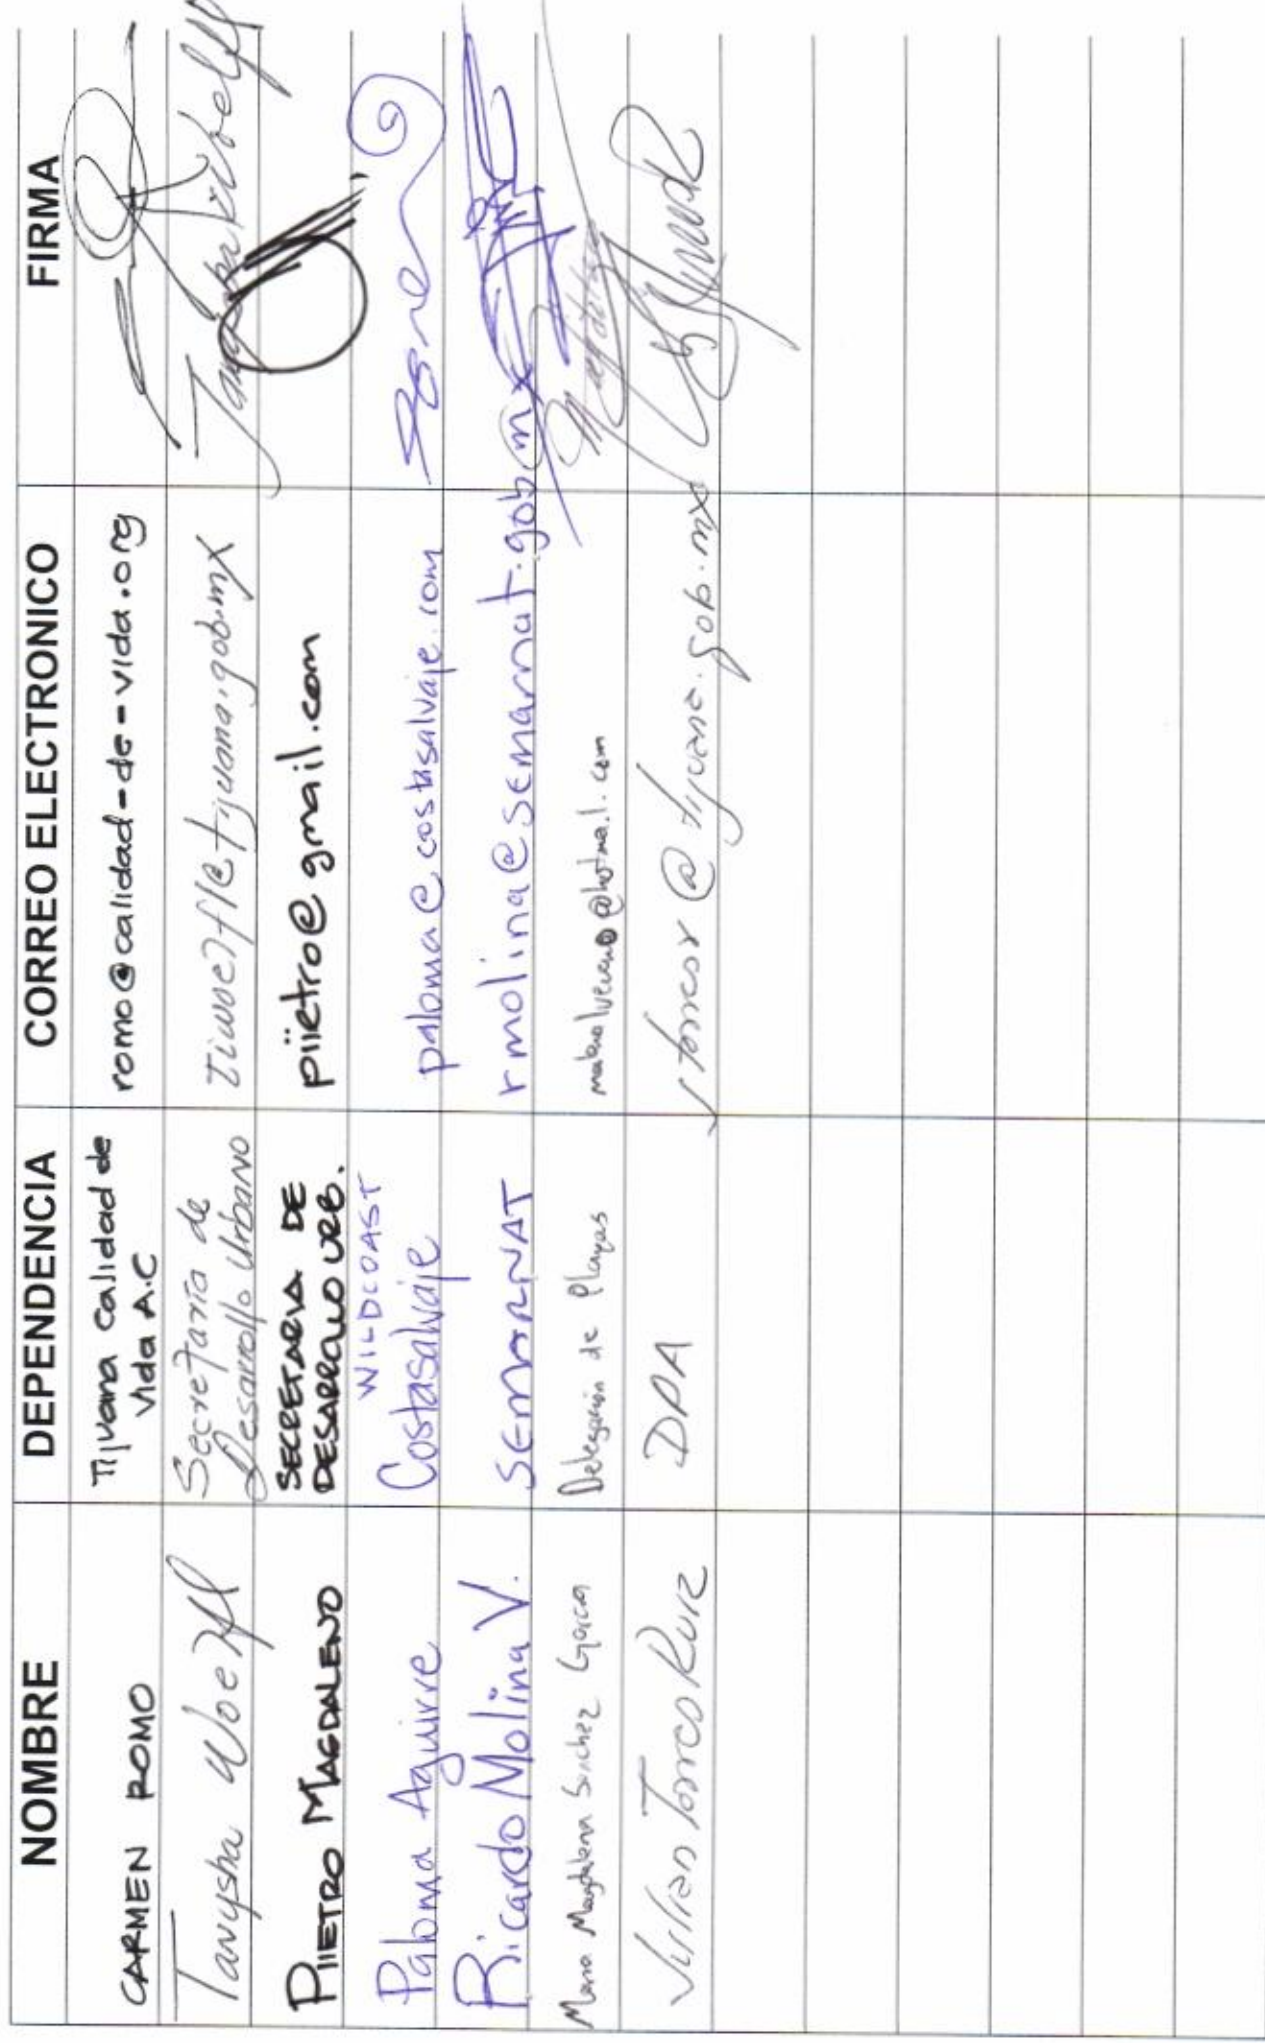 NOMBRE DEPENDENCIA CORREO ELECTRONICO FIRMA
CARMEN ROMO Tijuana Calidad de
Vida A.C romo@calidad-de-vida.org
Tanysha Woelfl Secretaría de
Desarrollo Urbano Tiwoelfl@tijuana.gob.mx
PIIETRO MAGDALENO SECRETARIA DE
DESARROLLO URB. piietro@gmail.com
Paloma Aguirre WILDCOAST
Costasalvaje paloma@costasalvaje.com
Ricardo Molina V. SEMARNAT rmolina@semarnat.gob.mx
Maria Magdalena Sánchez García Delegación de Playas
Julian Torres Ruiz DPA jtorresr@tijuana.gob.mx